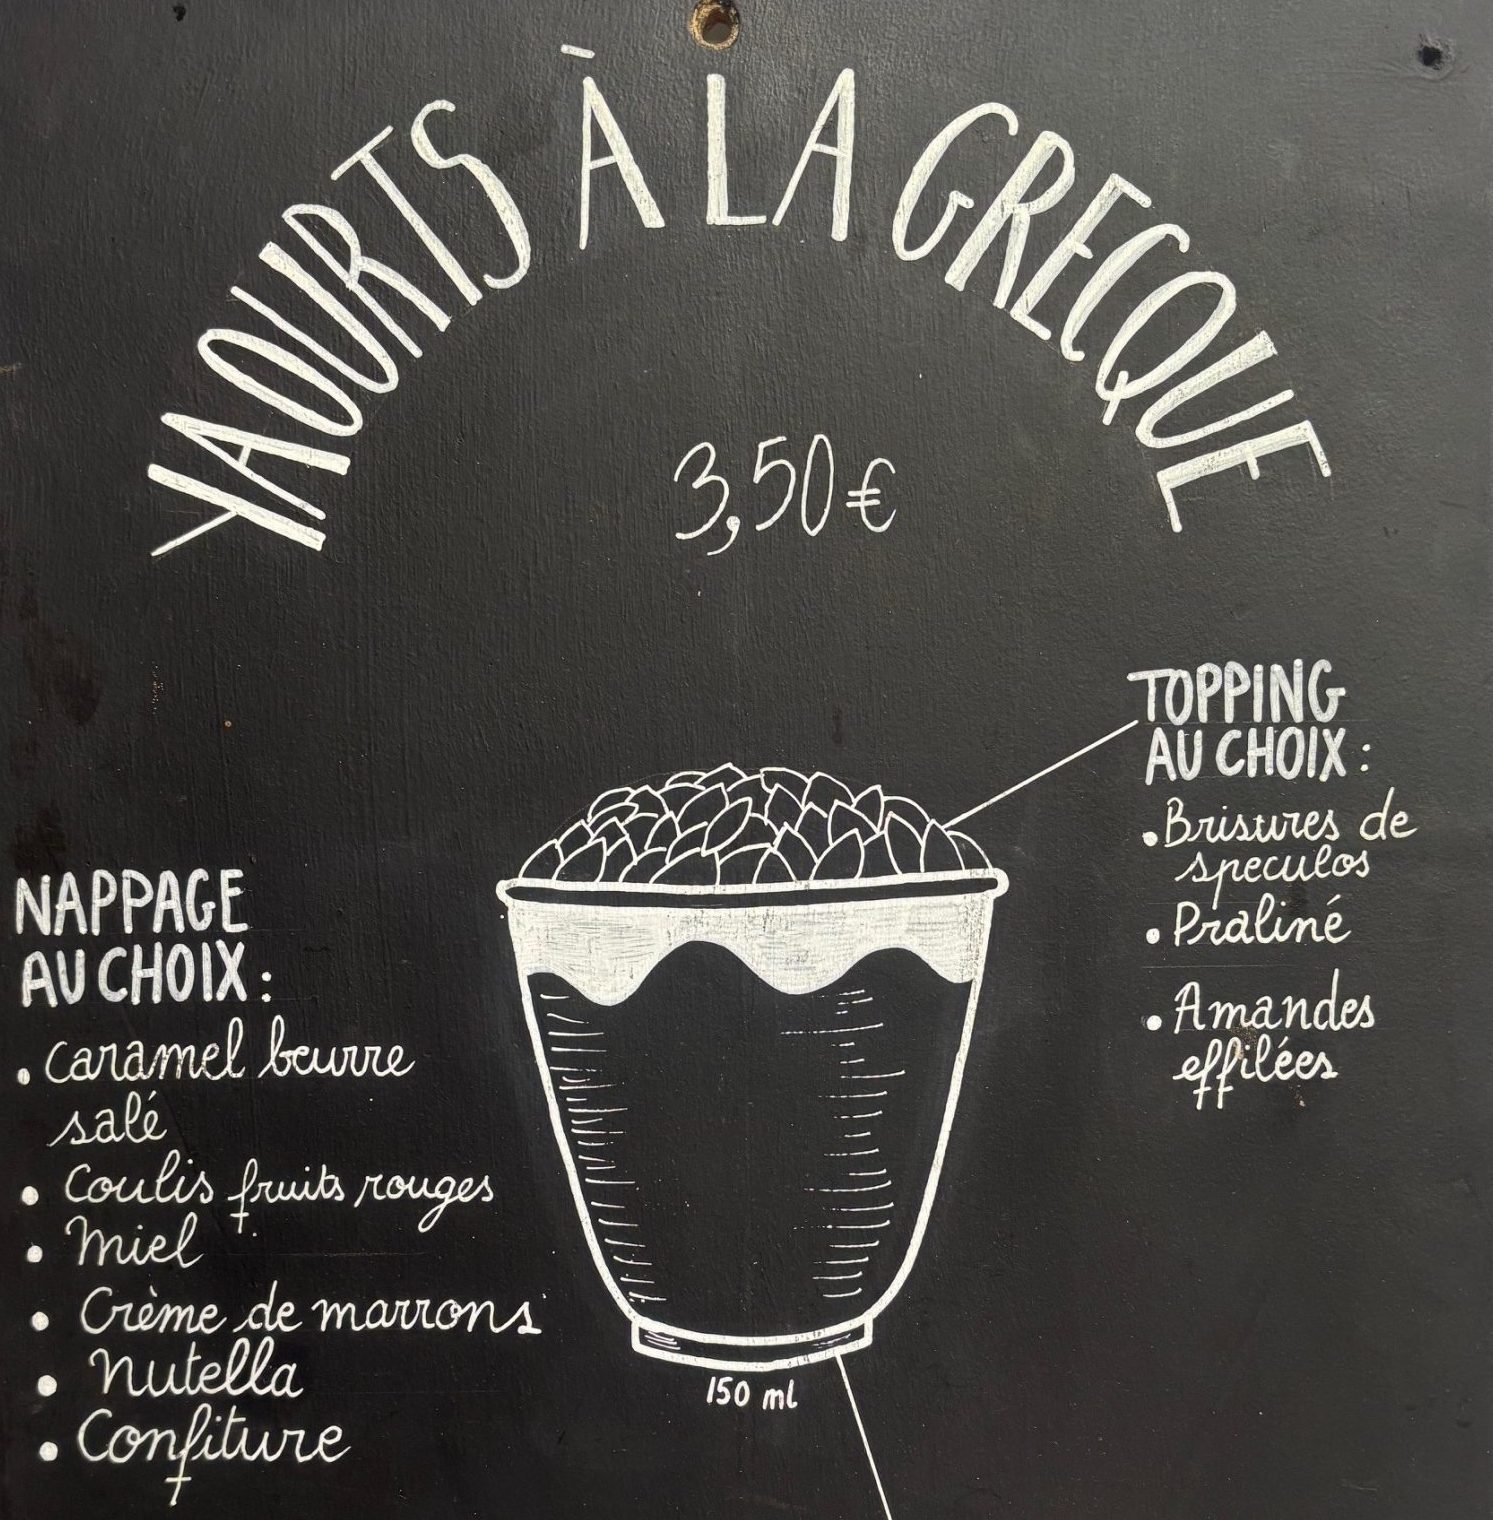 YAOURTS À LA GRECQUE
3,50€
TOPPING
AU CHOIX :
• Brisures de
speculos
• Praliné
• Amandes
effilées
NAPPAGE
AU CHOIX :
• Caramel beurre
salé
• Coulis fruits rouges
• Miel
• Crème de marrons
• Nutella
• Confiture
150 ml